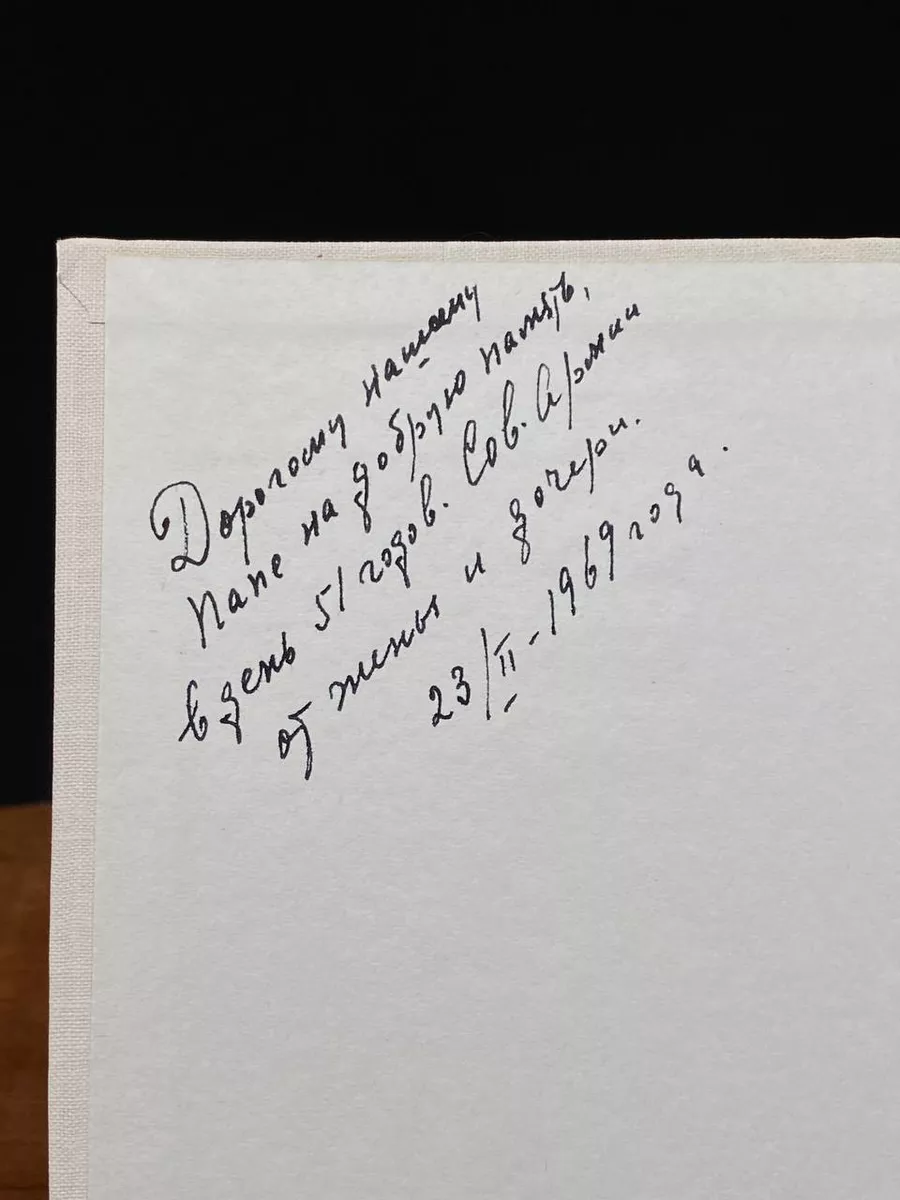 Дорогому нашему
папе на добрую память,
в день 51 годов. Сов. Армии
от жены и дочери.
23/II - 1969 года.